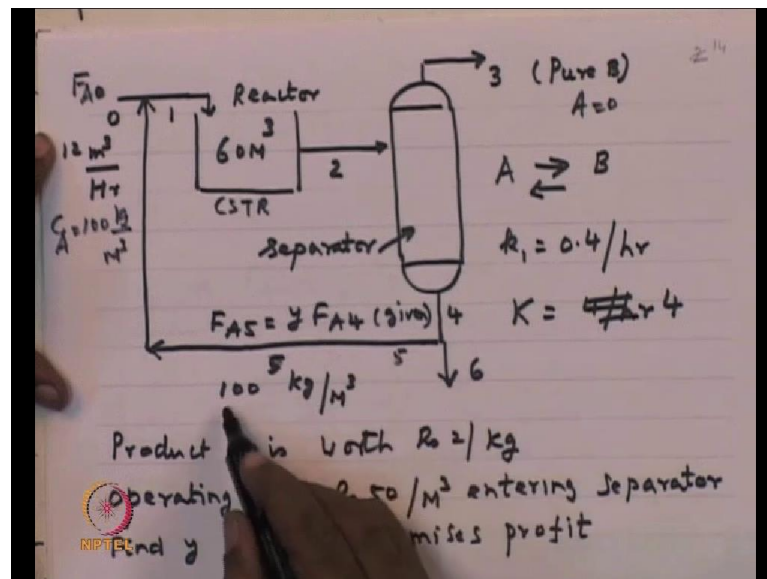 F_A0
Reactor
3 (Pure B)
A=0
0
1
12 m³
Hr
60M³
2
A ⇌ B
CSTR
C_A=100 kg
M³
separator
k₁ = 0.4/hr
F_A5 = y F_A4 (given)
4
K = 4
5
5
6
100 kg/M³
Product is worth Rs 2/kg
operating Rs 50/M³ entering separator
Find y mises profit
NPTEL